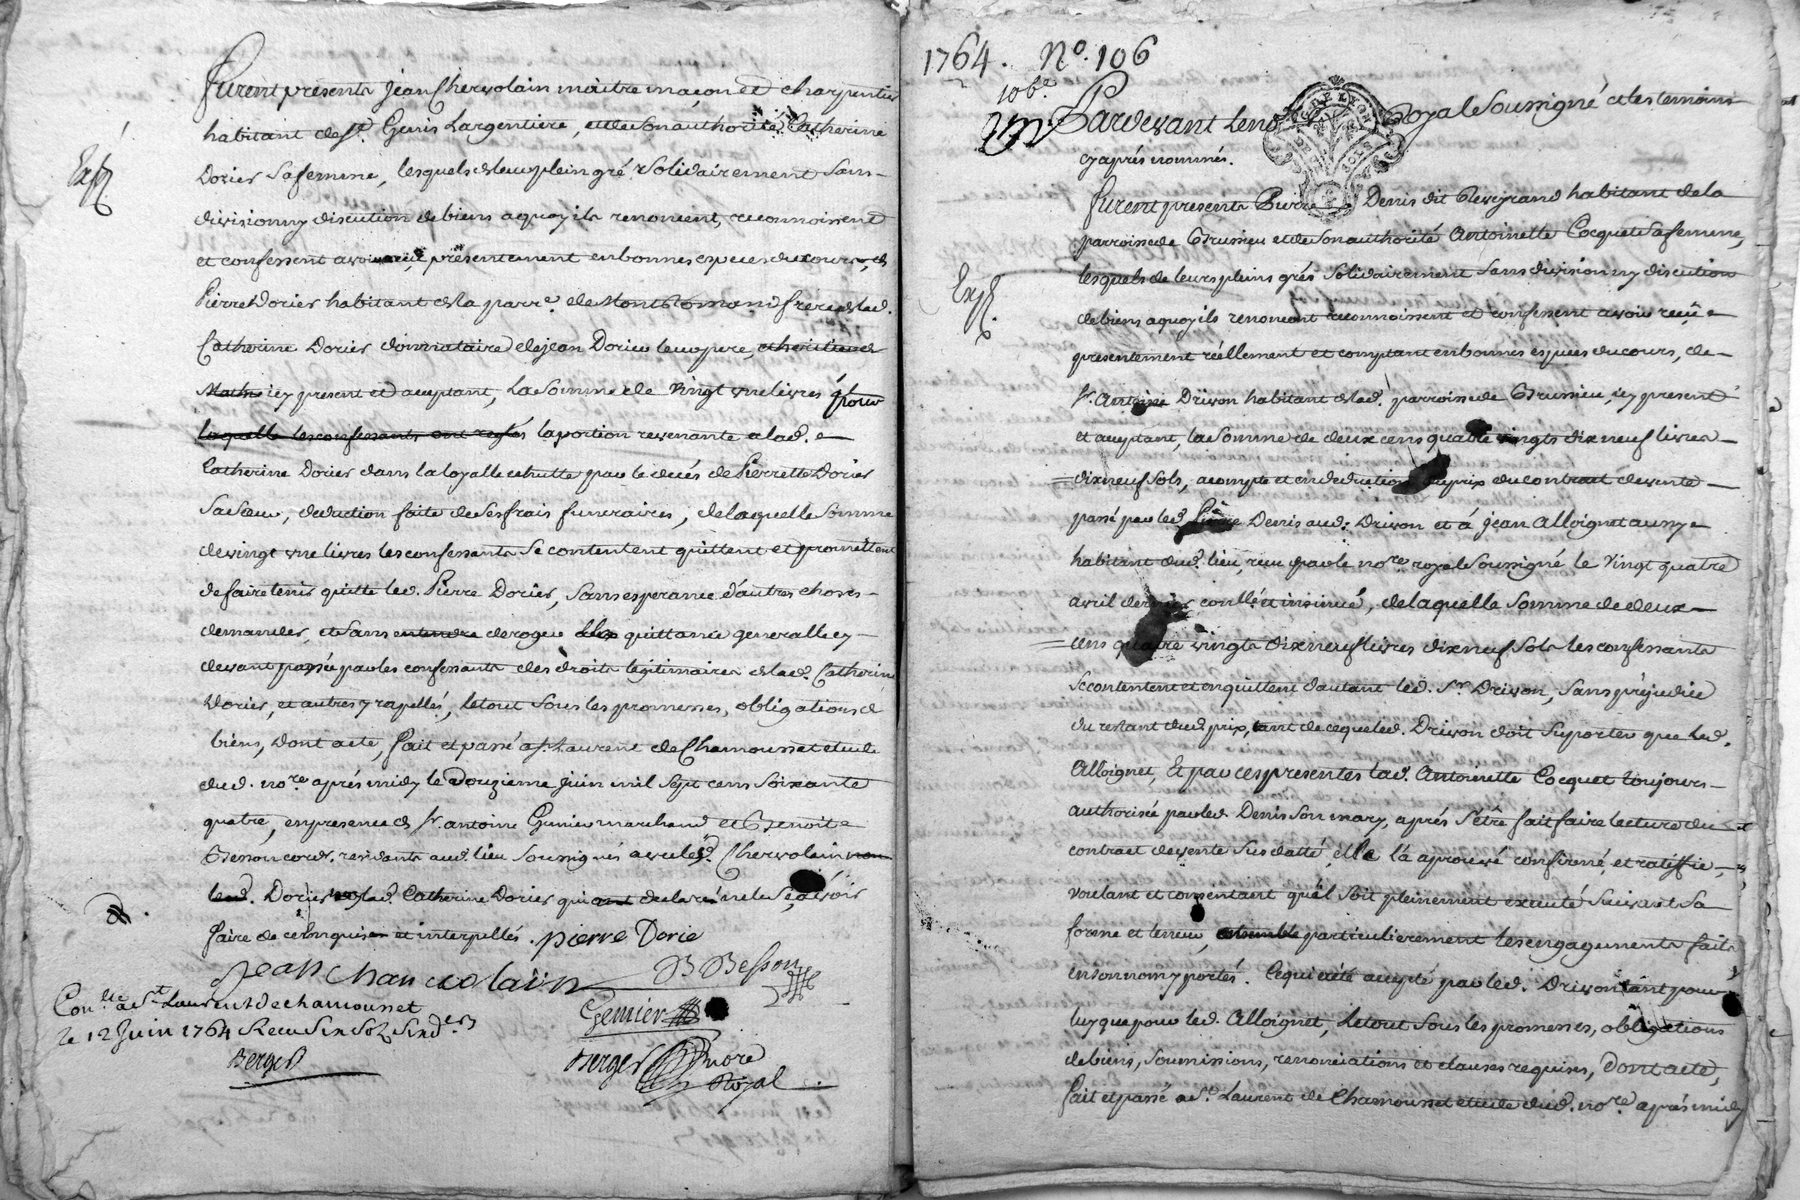 furent présents jean Chervolain maitre maçon et charpentier
habitant de St. Genis Largentiere, et de son authorité Catherine
Dorier sa femme, lesquels de leur plein gré solidairement sans
division ny discution de biens a quoy ils renoncent, reconnoissent
et confessent avoir reçu présentement en bonnes especes du cours, de
Pierre Dorier habitant de la parre. de Montromand frere de lad.
Catherine Dorier donnataire de jean Dorier leur pere,
icy present et acceptant, la somme de vingt une livres pour
laquelle les confessants ont reglés la portion revenante a lad.
Catherine Dorier dans la loyalle echutte par le decés de Pierrette Dorier
sa sœur, deduction faite de ses frais funeraires, de laquelle somme
de vingt une livres les confessants se contentent quittent et promettent
de faire tenir quitte led. Pierre Dorier, sans esperance d'autres choses
demander, et sans deroger quittance generalle cy
devant passée par les confessants des droits legitimaires de lad. Catherine
Dorier, et autres y rapellés, le tout sous les promesses, obligations de
biens, dont acte, fait et passé a St. Laurent de Chamousset etude
dud. nore. aprés midy le douzieme juin mil sept cens soixante
quatre, en presence de sr. antoine Genier marchand et Benoit
Besson cordr. residants aud. lieu soussignés avec led. Chervolain
led. Dorier lad. Catherine Dorier qui a declaré ne le sçavoir
faire de ce enquise et interpellés. pierre Dorie
jean Charvolain B Besson
Con.lé a St Laurent de chamousset Genier
le 12 juin 1764 Recu six sols six d.ers
Berger Berger nore
Royal
Exp.
1764. No. 106
106e.
Pardevant le no Royal soussigné et les temoins
cy aprés nommés.
furent presents Pierre Denis dit Reveyrand habitant de la
parroisse de Brussieu et de son authorité Antoinette Cocquet sa femme,
lesquels de leurs pleins grés solidairement sans division ny discution
Exp.
de biens a quoy ils renoncent reconnoissent et confessent avoir reçû
presentement réellement et comptant en bonnes especes du cours, de
sr. Antoine Drivon habitant de lad. parroisse de Brussieu, icy present
et acceptant, la somme de deux cens quatre vingts dix neuf livres
dix neuf sols, a compte et en deduction du prix du contrat de vente
passé par led. Pierre Denis aud. Drivon et á jean Alloignet aussy
habitant dud. lieu, recu par le nore. royal soussigné le vingt quatre
avril dernier conllé et insinué, de laquelle somme de deux
cens quatre vingts dix neuf livres dix neuf sols les confessants
se contentent et en quittent d'autant led. sr. Drivon, sans préjudice
du restant dud. prix, tant de ce que led. Drivon doit suporter que led.
Alloignet, Et par ces presentes lad. Antoinette Cocquet toujours
authorisée par led. Denis son mary, aprés s'être fait faire lecture du
contract de vente sus datté, elle l'a aprouvé confirmé, et ratiffié,
voulant et consentant qu'él soit pleinement executé suivant sa
forme et teneur, particulierement les engagements faits
en son nom y portés. Ce qui a été accepté par led. Drivon tant pour
luy que pour led. Alloignet, le tout sous les promesses, obligations
de biens, soumissions, renonciations et clauses requises, dont acte,
fait et passé a St. Laurent de Chamousset etude dud. nore. aprés midy